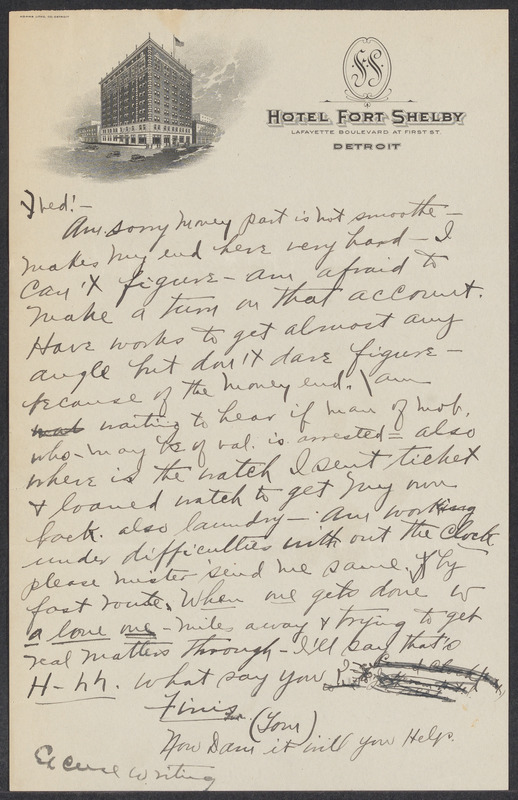 HOTEL FORT SHELBY
LAFAYETTE BOULEVARD AT FIRST ST.
DETROIT
Fred! -
Am sorry money part is not smoothe -
makes my end here very hard - I
can't figure - am afraid to
make a turn on that account.
Have works to get almost any
angle but don't dare figure -
because of the money end. I am
waiting to hear if man of mob,
who - may be of val. is arrested = also
where is the watch I sent ticket
& loaned watch to get my own
back. also laundry - Am working
under difficulties with out the clock
please mister send me same, & by
fast route. When one gets done w
a lone one - miles away & trying to get
real matters through - I'll say that's
H- what say you?
Finis
(Tom)
Now Dam it will you Help.
Excuse writing